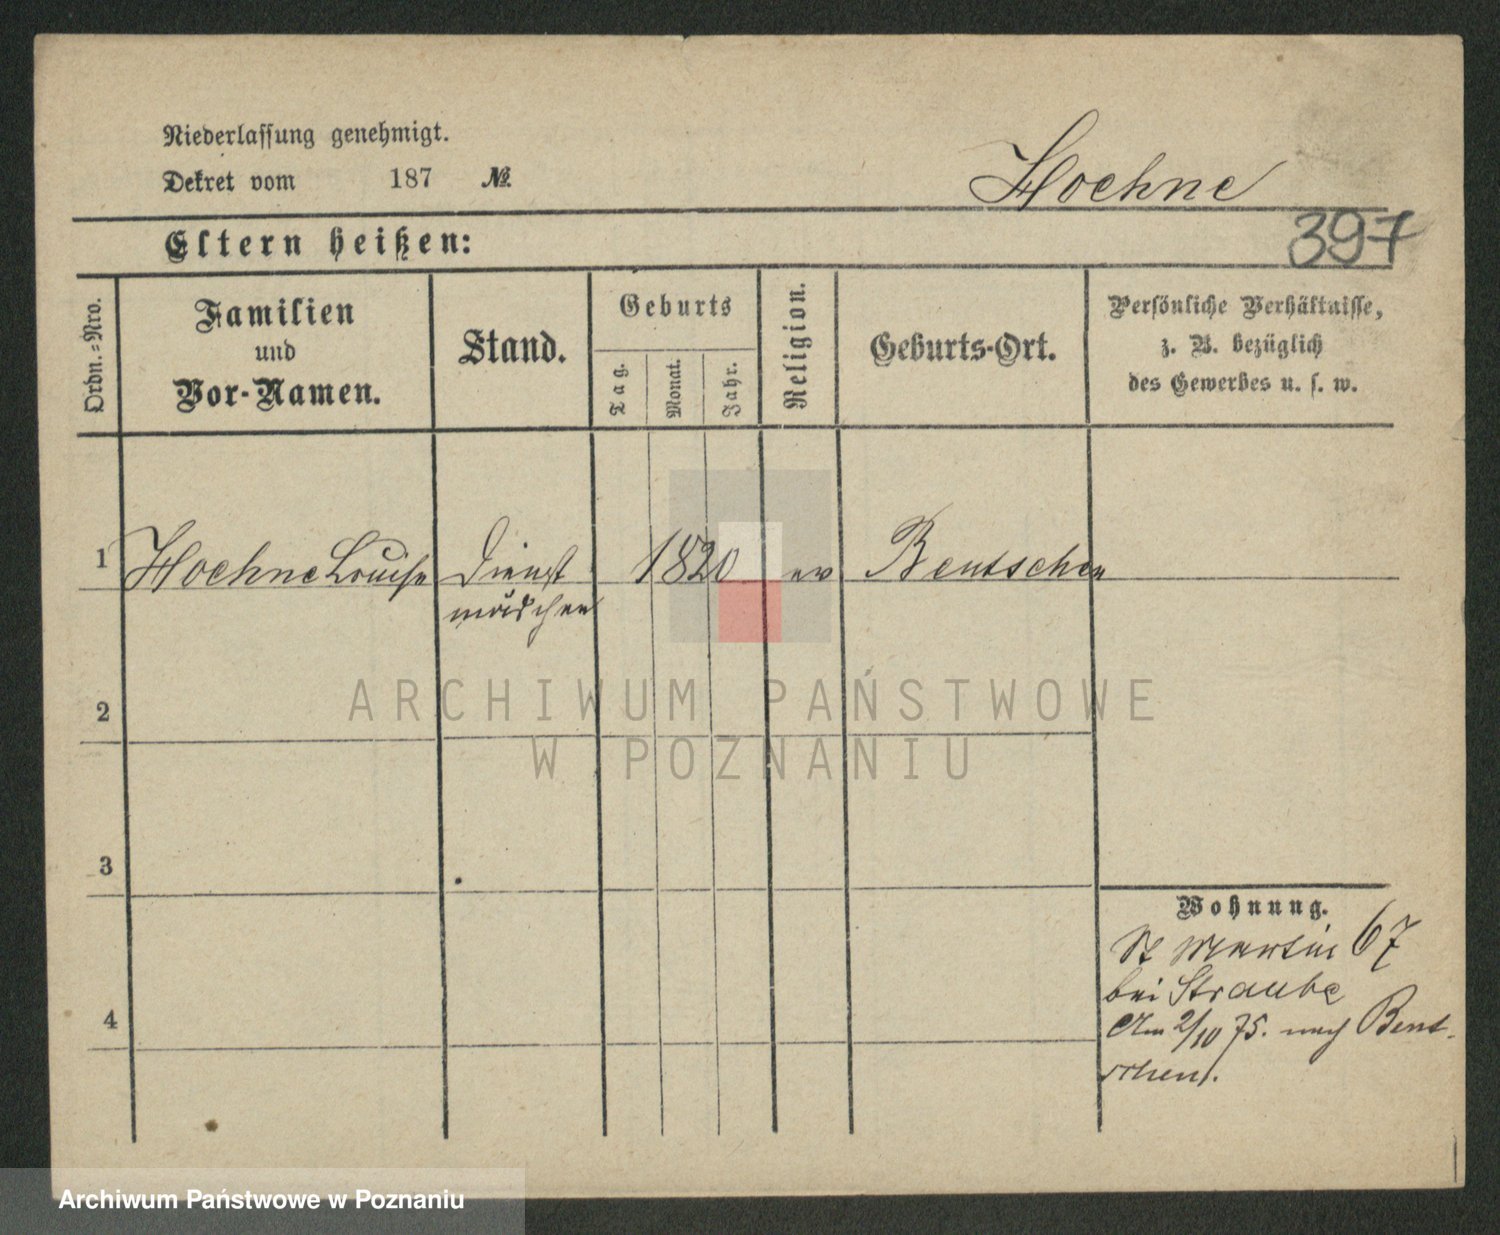 Niederlassung genehmigt.
Dekret vom 187 №
Hoehne
397
Eltern heißen:
Ordn.-Nro.
Familien
und
Vor-Namen.
Stand.
Geburts
Tag.
Monat.
Jahr.
Religion.
Geburts-Ort.
Persönliche Verhältnisse,
z. B. bezüglich
des Gewerbes u. s. w.
1 Hoehne Louise Dienst 1820 ev Bentschen
mädchen
ARCHIWUM PAŃSTWOWE
W POZNANIU
2
3
4
Wohnung.
St Martin 67
bei Straube
Am 2/10 75. nach Bent-
schen.
Archiwum Państwowe w Poznaniu